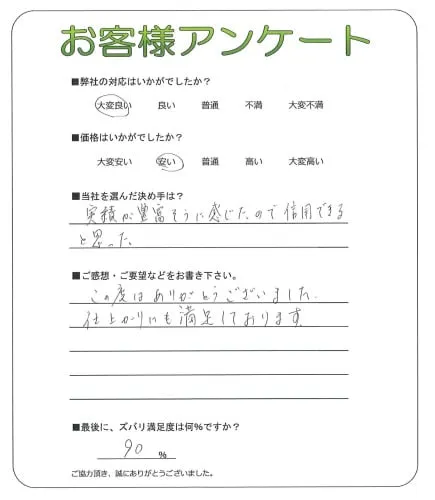 お客様アンケート
■弊社の対応はいかがでしたか？
大変良い 良い 普通 不満 大変不満
■価格はいかがでしたか？
大変安い 安い 普通 高い 大変高い
■当社を選んだ決め手は？
実績が豊富そうに感じたので信用できる
と思った。
■ご感想・ご要望などをお書き下さい。
この度はありがとうございました.
仕上がりにも満足しております.
■最後に、ズバリ満足度は何％ですか？
90 ％
ご協力頂き、誠にありがとうございました。